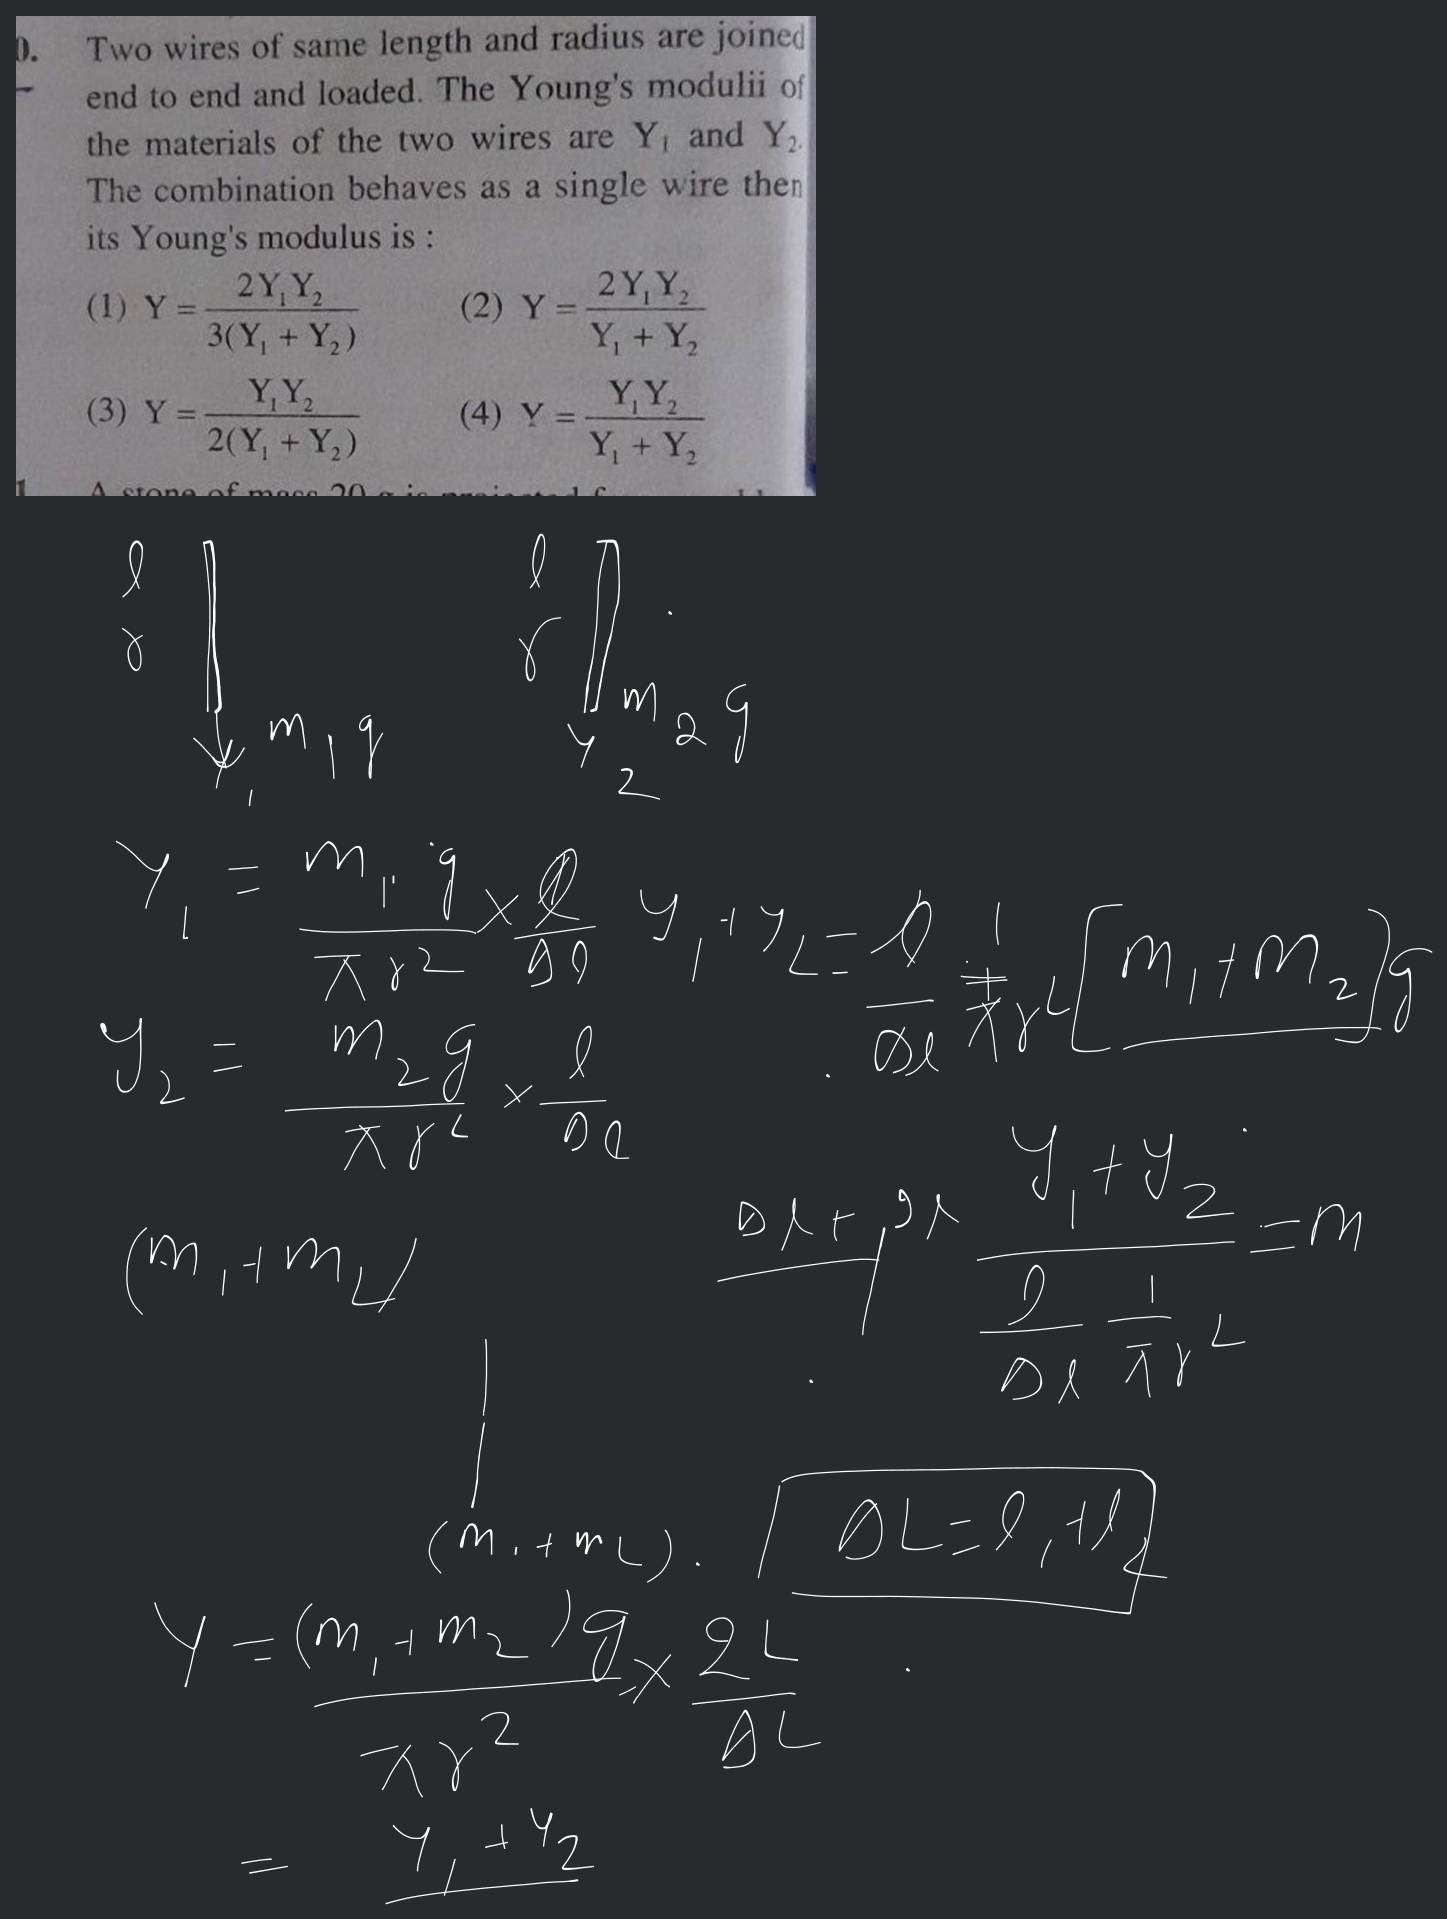 0. Two wires of same length and radius are joined
end to end and loaded. The Young's modulii of
the materials of the two wires are Y₁ and Y₂.
The combination behaves as a single wire then
its Young's modulus is :
(1) Y = 2Y₁Y₂ / 3(Y₁ + Y₂) (2) Y = 2Y₁Y₂ / Y₁ + Y₂
(3) Y = Y₁Y₂ / 2(Y₁ + Y₂) (4) Y = Y₁Y₂ / Y₁ + Y₂
1 A stone of mass 20 g is
l l
r r
m₁g m₂g
Y₁ Y₂
Y₁ = m₁g / πr² × l / Δl Y₁+Y₂ = l / Δl 1 / πr² [m₁+m₂]g
Y₂ = m₂g / πr² × l / Δl
Y₁+Y₂ / l / Δl 1 / πr² = m
(m₁+m₂)
(m₁+m₂). ΔL = l₁+l₂
Y = (m₁+m₂)g / πr² × 2L / ΔL
= Y₁+Y₂